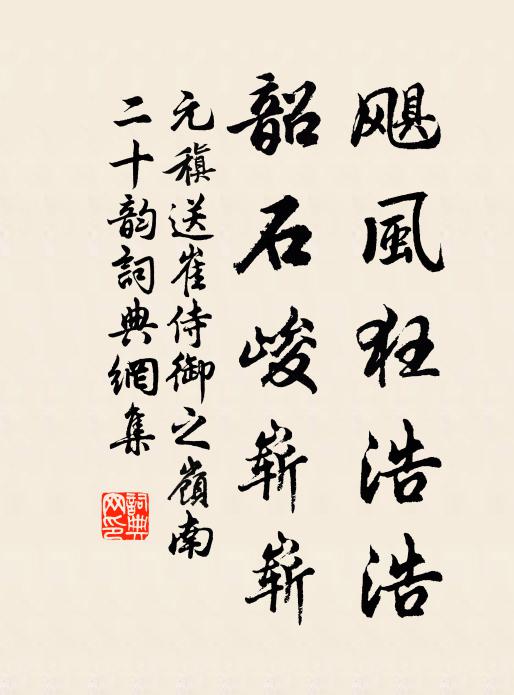 飓風狂浩浩
韶石峻嶄嶄
元稹送崔侍御之嶺南
二十韵詞典網集
詞典
网印